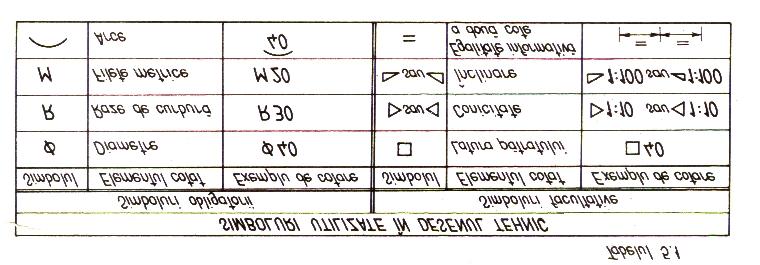 Tabelul 5.1
SIMBOLURI UTILIZATE ÎN DESENUL TEHNIC
Simboluri obligatorii Simboluri facultative
Simbolul Elementul cotat Exemplu de cotare Simbolul Elementul cotat Exemplu de cotare
Ø Diametre Ø40 □ Latura pătratului □40
R Raze de curbură R30 ▷ sau ◁ Conicitate ▷1:10 sau ◁1:10
M Filete metrice M20 ▷ sau ◁ Înclinare ▷1:100 sau ◁1:100
⌒ Arce 40 = Egalitate informativă = =
a două cote